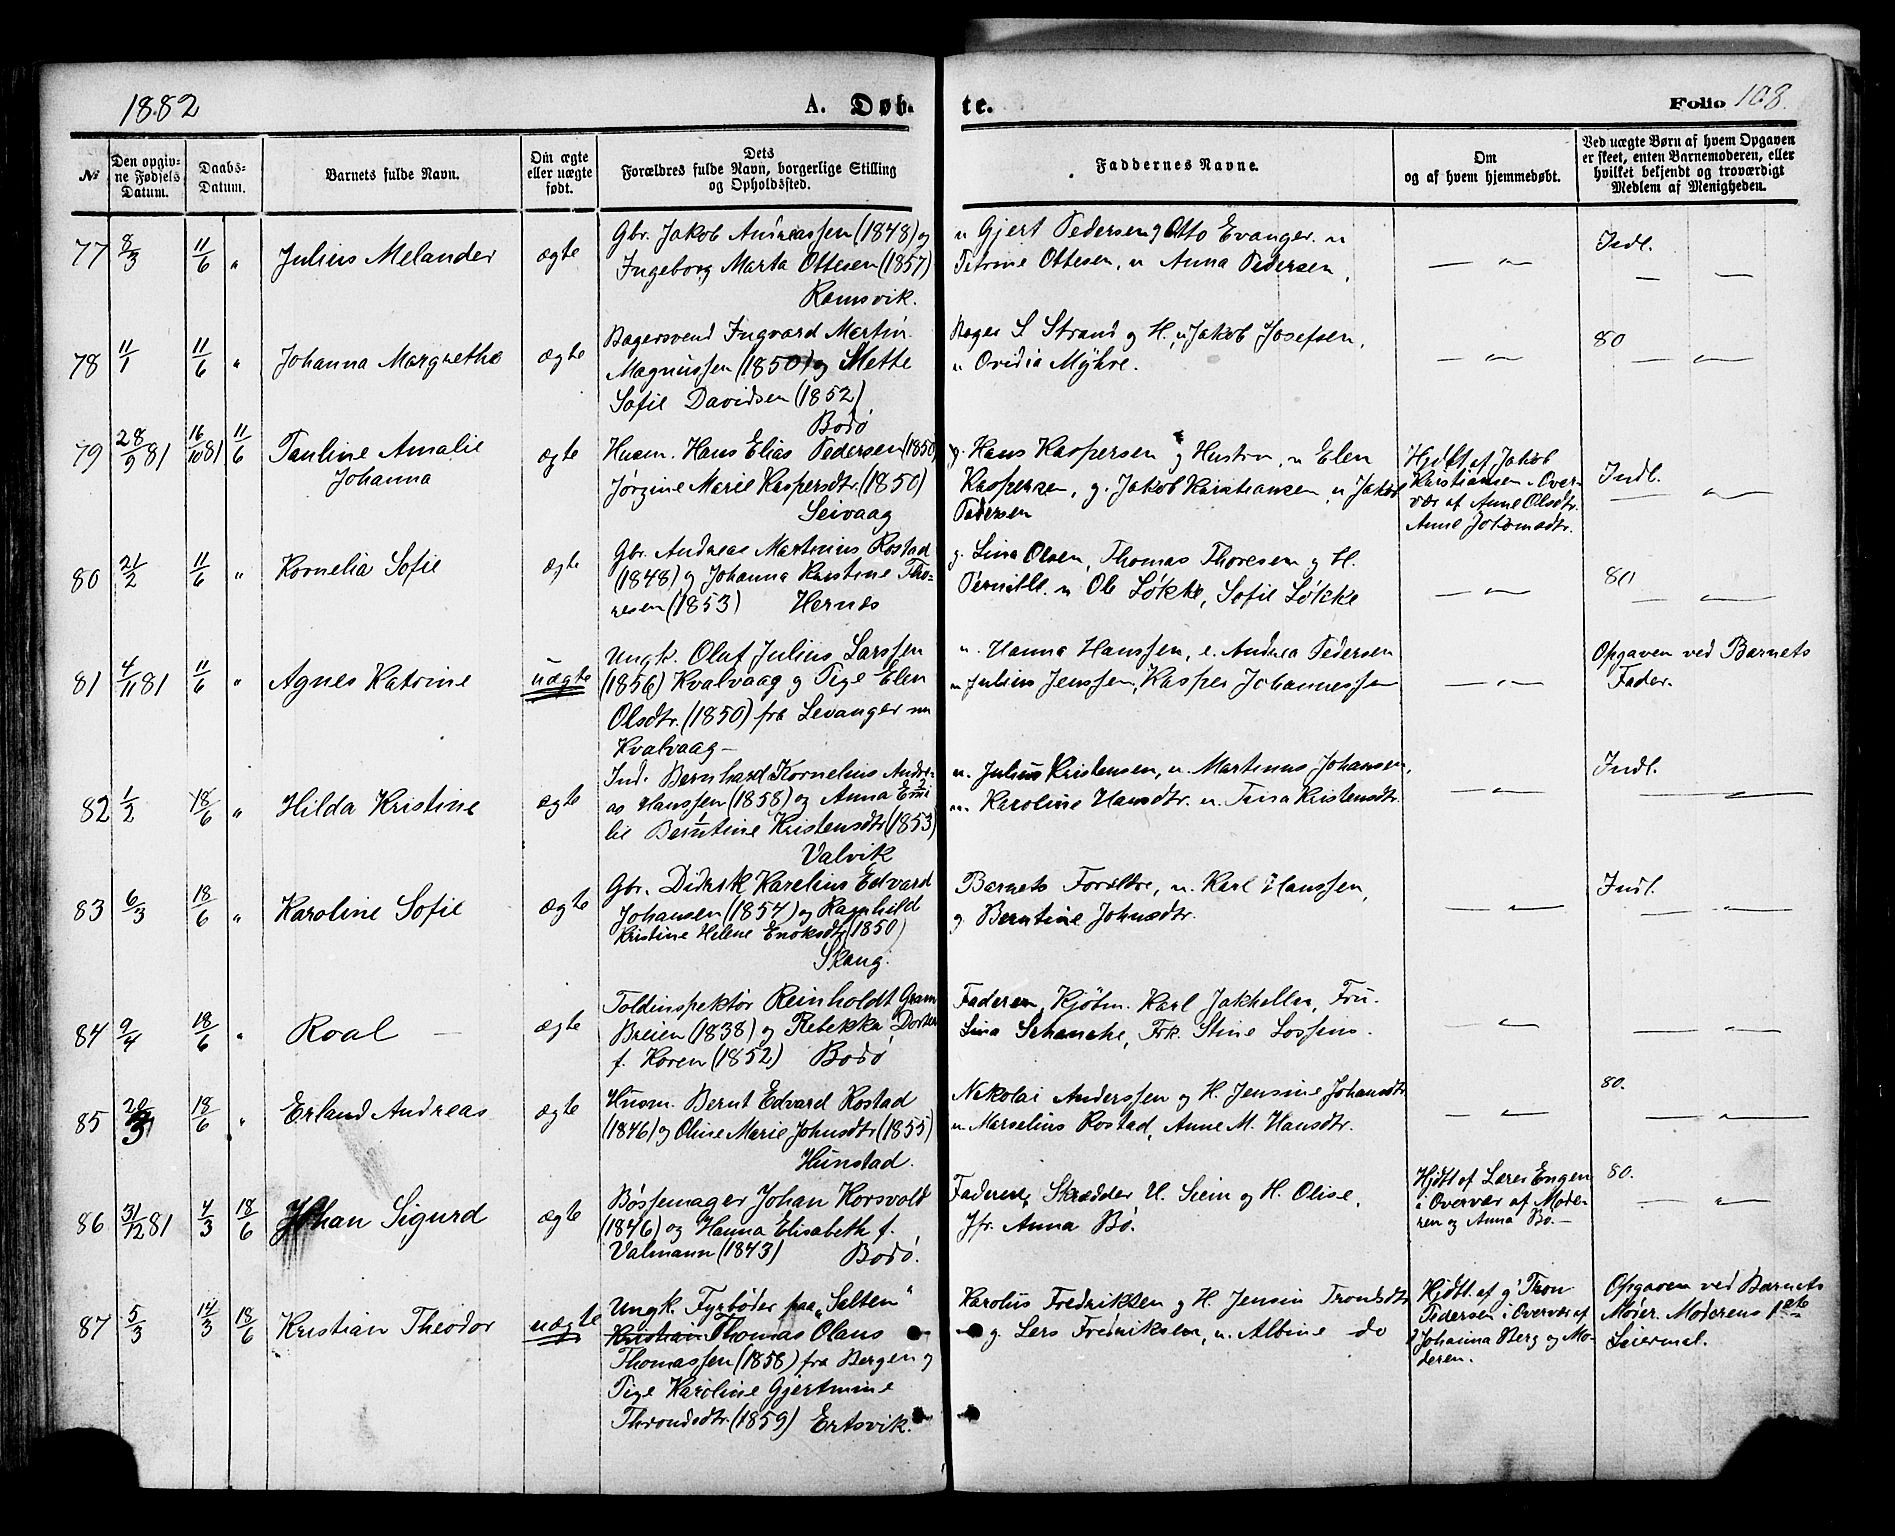 1882
A. Døb-
te.
Folio 108.
No
Den opgiv-
ne Fødsels
Datum.
Daabs-
Datum.
Barnets fulde Navn.
Om ægte
eller uægte
født.
Dets
Forældres fulde Navn, borgerlige Stilling
og Opholdssted.
Faddernes Navne.
Om
og af hvem hjemmedøbt.
Ved uægte Børn af hvem Opgaven
er skeet, enten Barnemoderen, eller
hvilket bekjendt og troværdigt
Medlem af Menigheden.
77 8/3 11/6 " Julius Melander ægte
Gbr. Jakob Andreassen (1848) og
Ingeborg Marta Ottesen (1857)
Ramsvik.
u Gjert Pedersen g Otto Evanger. u
Petrine Ottesen, u Anna Pedersen,
— " —
Indl.
— —
78 11/1 11/6 " Johanna Margrethe ægte
Bagersvend Ingvard Martin
Magnussen (1850) og Mette
Sofie Davidsen (1852)
Bodø
Bager S Strand og H., u Jakob Josefsen,
u Ovidia Myhre.
— " —
80
— " —
79 28/9 81 16/10 81 11/6 Pauline Amalie
Johanna
ægte
Husm. Hans Elias Pedersen (1850)
Jørgine Marie Kaspersdtr. (1850)
Seivaag
g. Hans Kaspersen og Hustru, u Elen
Kaspersen, g. Jakob Kristiansen, u Jakob
Pedersen
Hjdbt af Jakob
Kristiansen i Over-
vær af Anne Olsdtr.
Anne
Indl.
— " —
80 21/2 11/6 " Kornelia Sofie ægte
Gbr. Andreas Martinus Rostad
(1848) og Johanna Kristine Tho-
resen (1853) Hernes
g. Lina Olsen, Thomas Thoresen og H.
Pernille. u Ole Løkke, Sofie Løkke
— " —
80
— " —
81 4/11 81 11/6 " Agnes Katrine uægte
Ungk. Olaf Julius Larssen
(1856) Kvalvaag og Pige Elen
Olsdtr. (1850) fra Levanger nu
Kvalvaag —
u. Hanna Hanssen, e. Andrea Pedersen
u Julius Jenssen, Kasper Johannessen
— " —
Opgaven ved Barnets
Fader.
82 1/2 18/6 " Hilda Kristine ægte
Ind. Bernhard Kornelius Andre-
as Hanssen (1858) og Anna Emi-
lie Berntine Kristensdtr (1853)
Valvik
u. Julius Kristensen, u. Martinus Johansen,
u. Karoline Hansdtr. u. Trina Kristensdtr.
— " —
Indl.
— " —
83 6/3 18/6 " Karoline Sofie ægte
Gbr. Didrik Karelius Edvard
Johansen (1854) og Ragnhild
Kristine Helene Enoksdtr (1850)
Skaug.
Barnets Forældre, u. Karl Hanssen,
g. Berntine Johnsdtr.
— " —
Indl.
— " —
84 9/4 18/6 " Roal — ægte
Toldinspektør Reinholdt Gram
Breien (1838) og Rebekka Dorthea
f. Koren (1852) Bodø
Faderen, Kjøbm. Karl Jakhelln, Fru
Lina Schanche, Frk. Stine Lossius.
— " —
— " —
85 20/3 18/6 " Erland Andreas ægte
Husm. Bernt Edvard Rostad
(1846) og Oline Marie Johnsdtr (1855)
Hunstad.
Nikolai Anderssen og H. Jensine Johansdtr
u Marselius Rostad, Anne M. Hansdtr.
— " —
80.
— " —
86 31/12 81 4/3 18/6 Johan Sigurd ægte
Bøssemager Johan Korsvold
(1846) og Hanna Elisabeth f.
Valmann (1843) Bodø.
Faderen, Skrædder U. Siem og H. Olise,
Jfr. Anna Bø.
Hjdt af Lærer Engen
i Overvær af Mode-
ren og Anna Bø. —
80.
— " —
87 5/3 14/3 18/6 Kristian Theodor uægte
Ungk. Fyrbøder paa "Salten"
Kristian Thomas Olaus
Thomassen (1858) fra Bergen og
Pige Karoline Gjertmine
Throndsdtr. (1859) Ertsvik.
Karolus Fredriksen og H. Jensin Trondsdtr
g. Lers Fredriksen, u. Albine do
Hjdt. af g Tron
Pedersen i Overvær af
Johanna Berg og Mo-
deren.
Opgaven ved Barnets
Moder. Moderens 1ste
Leiermal.